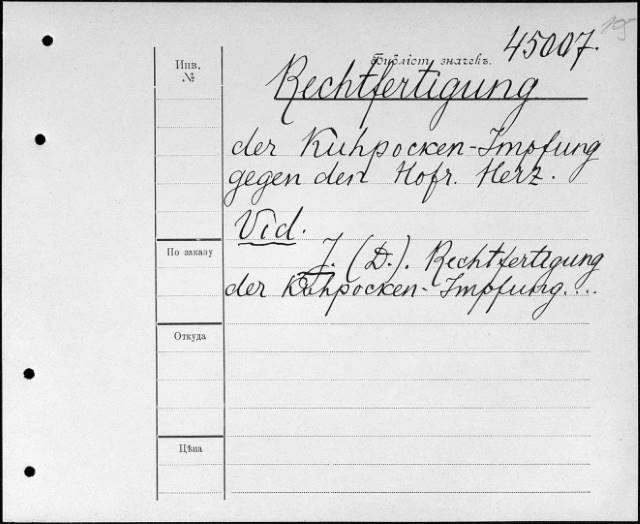 19
45007.
Инв.
№
Библіот. значекъ.
Rechtfertigung
der Kuhpocken-Impfung
gegen den Hofr. Herz.
Vid.
По заказу
J. (D.). Rechtfertigung
der Kuhpocken-Impfung....
Откуда
Цѣна